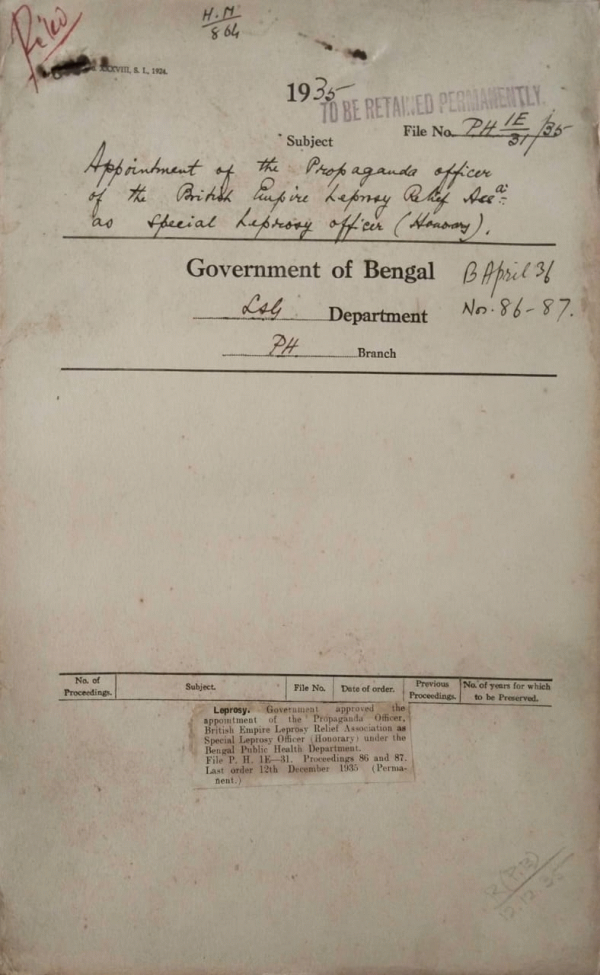 H. M
864
XXXVIII, S. I., 1924.
1935
TO BE RETAINED PERMANENTLY.
File No. PH 1E/31/35
Subject
Appointment of the Propaganda officer
of the British Empire Leprosy Relief Assn.
as Special Leprosy officer (Honorary).
Government of Bengal
B April 36
LSG Department
Nos. 86-87.
PH Branch
No. of Proceedings. Subject. File No. Date of order. Previous Proceedings. No. of years for which to be Preserved.
Leprosy. Government approved the
appointment of the Propaganda Officer,
British Empire Leprosy Relief Association as
Special Leprosy Officer (Honorary) under the
Bengal Public Health Department.
File P. H. 1E—31. Proceedings 86 and 87.
Last order 12th December 1935 (Perma-
nent.)
12.12.35